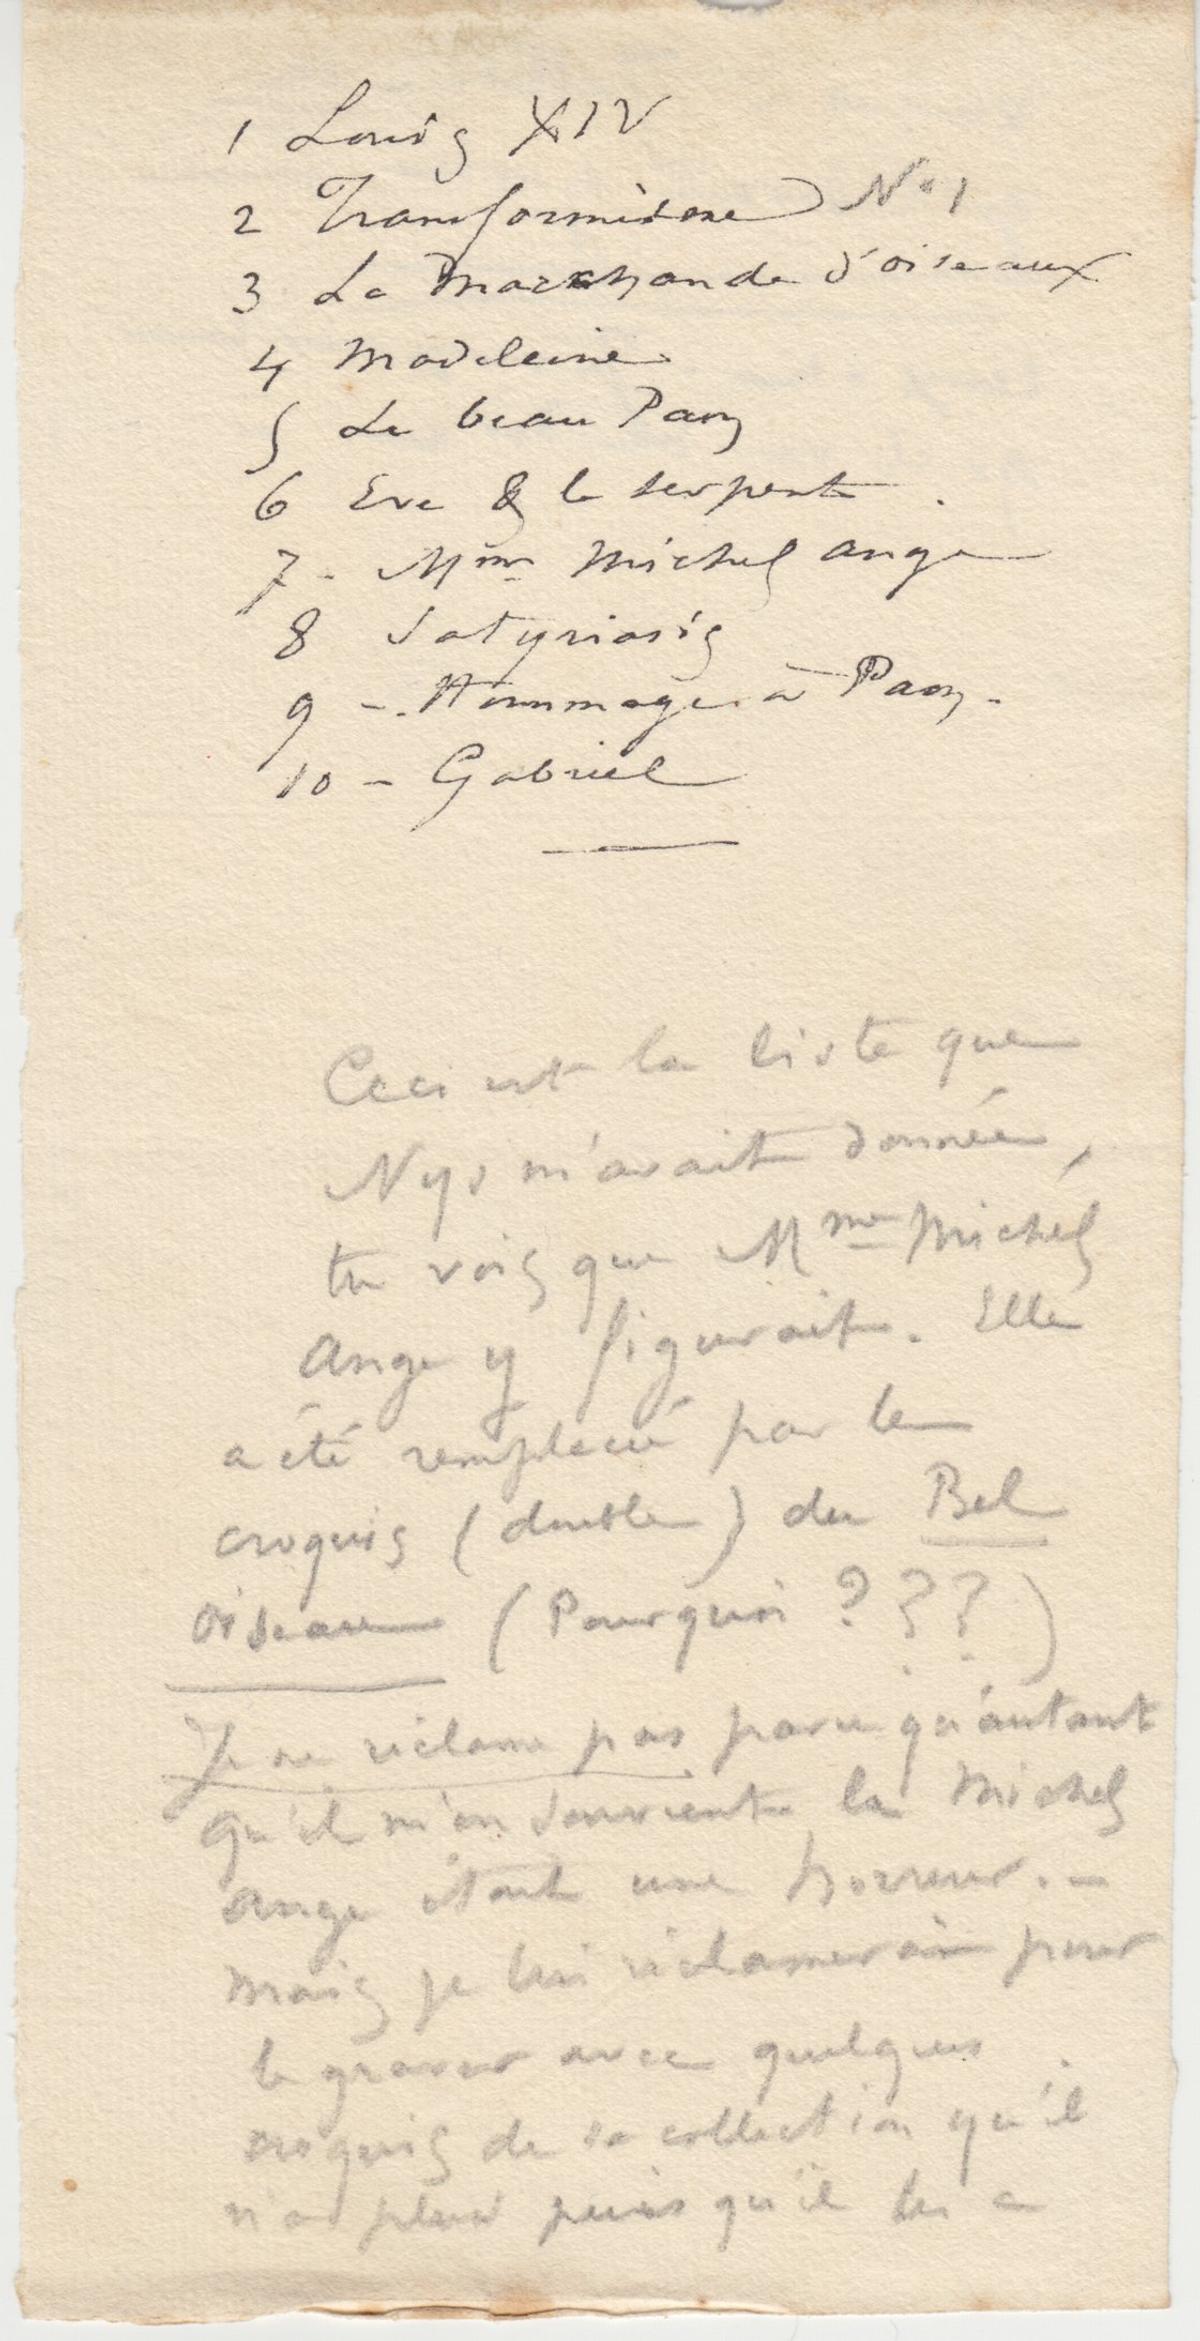 1 Louis XIV
2 Transformisme N° 1
3 La Marchande d'oiseaux
4 Madeleine
5 Le beau Paon
6 Eve & le serpent.
7 - Mme Michel ange
8 Satyriasis
9 - Hommage à Pan.
10 - Gabriel
Ceci est la liste que
Nys m'avait donnée,
tu vois que Mme Michel
Ange y figurait. Elle
a été remplacé par le
croquis (double) du Bel
oiseau (Pourquoi ???)
Je ne réclame pas parce qu'autant
qu'il m'en souvient la Michel
ange était une horreur. -
Mais je lui réclamerai pour
le graveur avec quelques
croquis de sa collection qu'il
n'a plus puisqu'il les a